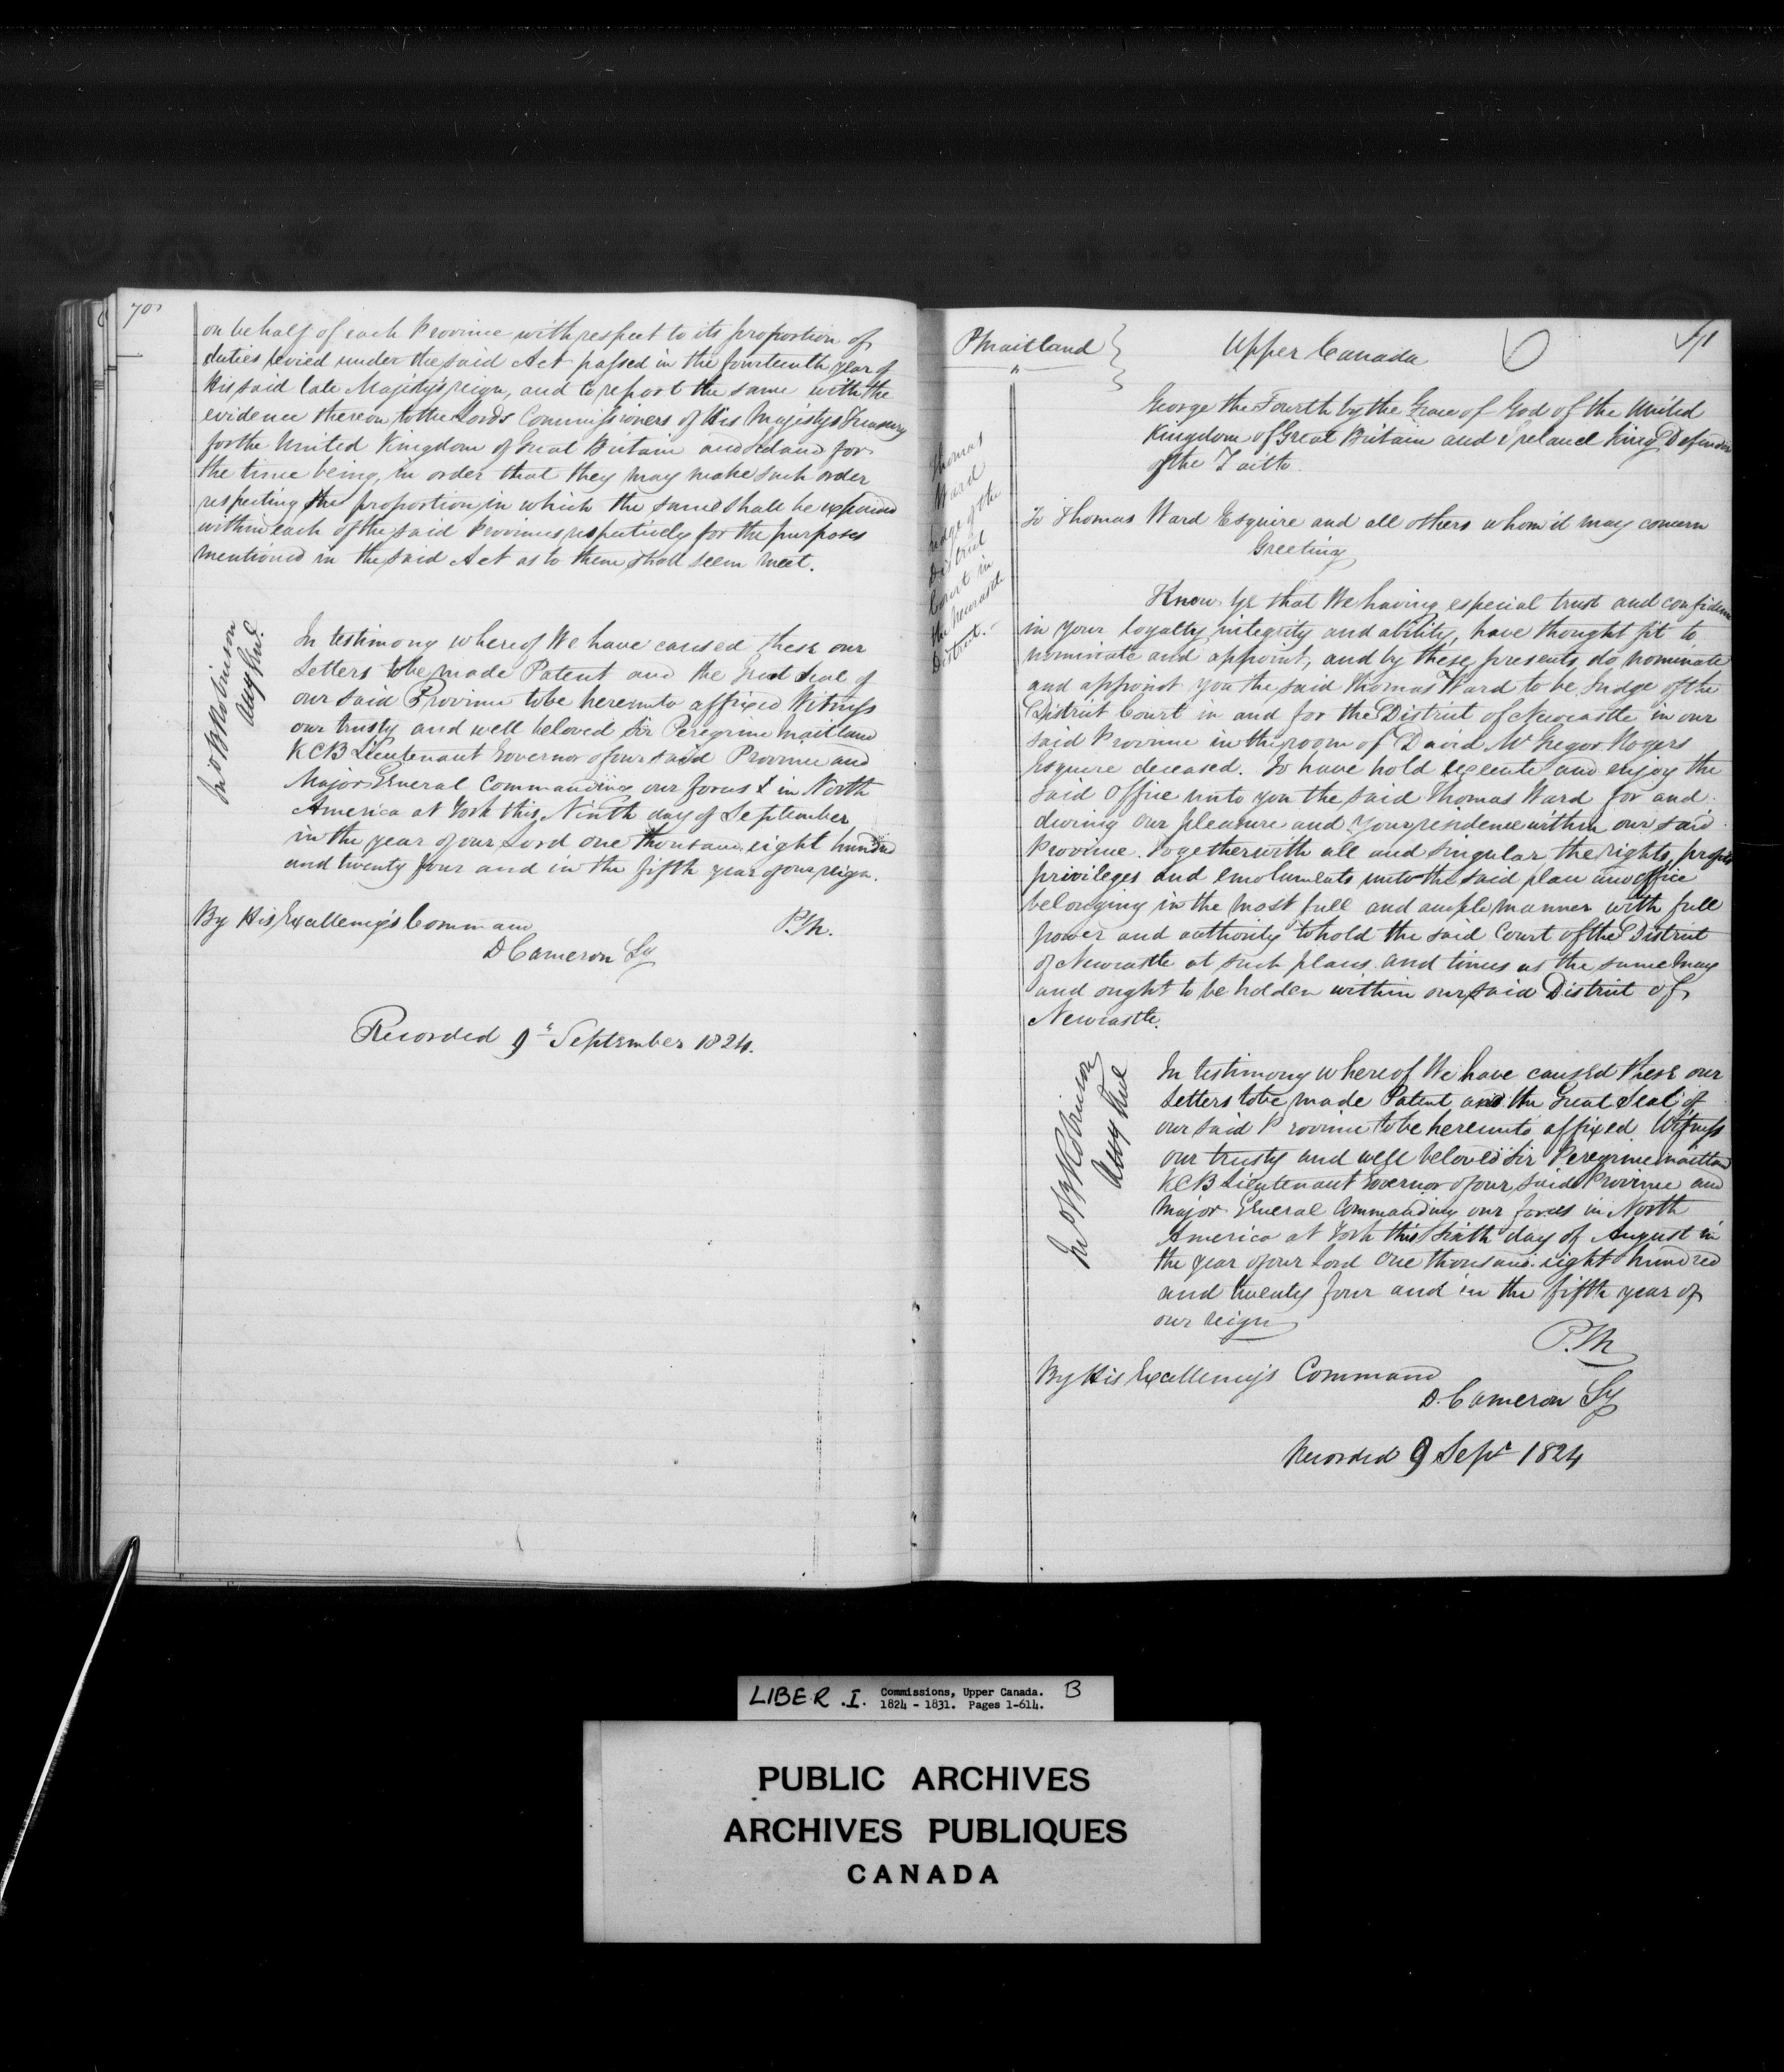 70
on behalf of each Province with respect to its proportion of
duties levied under the said Act passed in the fourteenth year of
His said late Majesty's reign, and to report the same with the
evidence thereon to the Lords Commissioners of His Majestys Treasury
for the United Kingdom of Great Britain and Ireland for
the time being, in order that they may make such order
respecting the proportion in which the same shall be
within each of the said Provinces respectively for the purposes
mentioned in the said Act as to them shall seem meet.
Jno B Robinson
Atty Genl.
In testimony whereof We have caused these our
Letters to be made Patent and the Great Seal of
our said Province to be hereunto affixed Witness
our trusty and well beloved Sir Peregrine Maitland
KCB Lieutenant Governor of our said Province and
Major General Commanding our forces in North
America at York this Ninth day of September
in the year of our Lord one thousand eight hundred
and twenty four and in the fifth year of our reign.
By His Excellency's Command
P.M.
D Cameron Sy
Recorded 9th September 1824.
P Maitland
Upper Canada
71
George the Fourth by the Grace of God of the United
Kingdom of Great Britain and Ireland King Defender
of the Faith
Thomas
Ward
Judge of the
District
Court in
the Newcastle
District.
To Thomas Ward Esquire and all others whom it may concern
Greeting
Know Ye that We having especial trust and confidence
in your loyalty integrity and ability, have thought fit to
nominate and appoint, and by these presents, do nominate
and appoint you the said Thomas Ward to be Judge of the
District Court in and for the District of Newcastle in our
said Province in the room of David McGregor Rogers
Esquire deceased. To have hold execute and enjoy the
said Office unto you the said Thomas Ward for and
during our pleasure and your residence within our said
Province. Together with all and singular the rights, profits
privileges and emoluments unto the said place and office
belonging in the most full and ample manner with full
power and authority to hold the said Court of the District
of Newcastle at such places and times as the same may
and ought to be holden within our said District of
Newcastle.
Jno B Robinson
Atty Genl
In testimony whereof We have caused these our
Letters to be made Patent and the Great Seal of
our said Province to be hereunto affixed Witness
our trusty and well beloved Sir Peregrine Maitland
KCB Lieutenant Governor of our said Province and
Major General Commanding our forces in North
America at York this Sixth day of August in
the year of our Lord One thousand eight hundred
and twenty four and in the fifth year of
our reign
P.M
By His Excellency's Command
D. Cameron Sy
Recorded 9 Sept 1824
LIBER . I. Commissions, Upper Canada. B
1824 - 1831. Pages 1-614.
PUBLIC ARCHIVES
ARCHIVES PUBLIQUES
CANADA